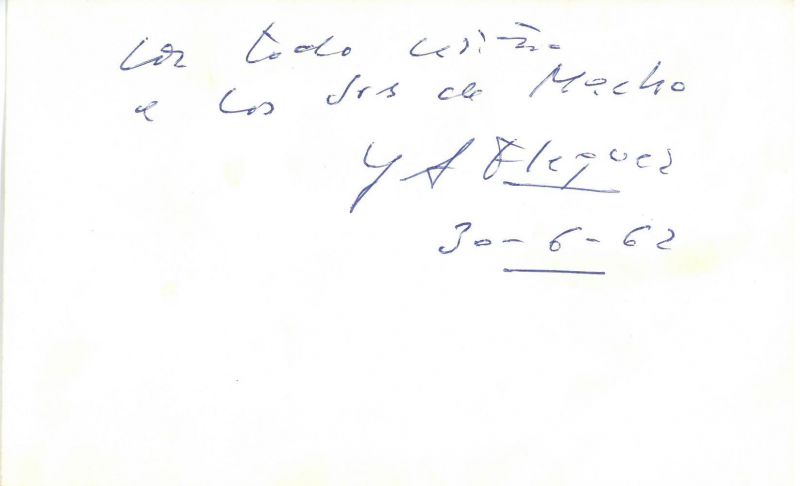 Con todo cariño
a los Srs de Macho
Y A Fleguez
30-6-62